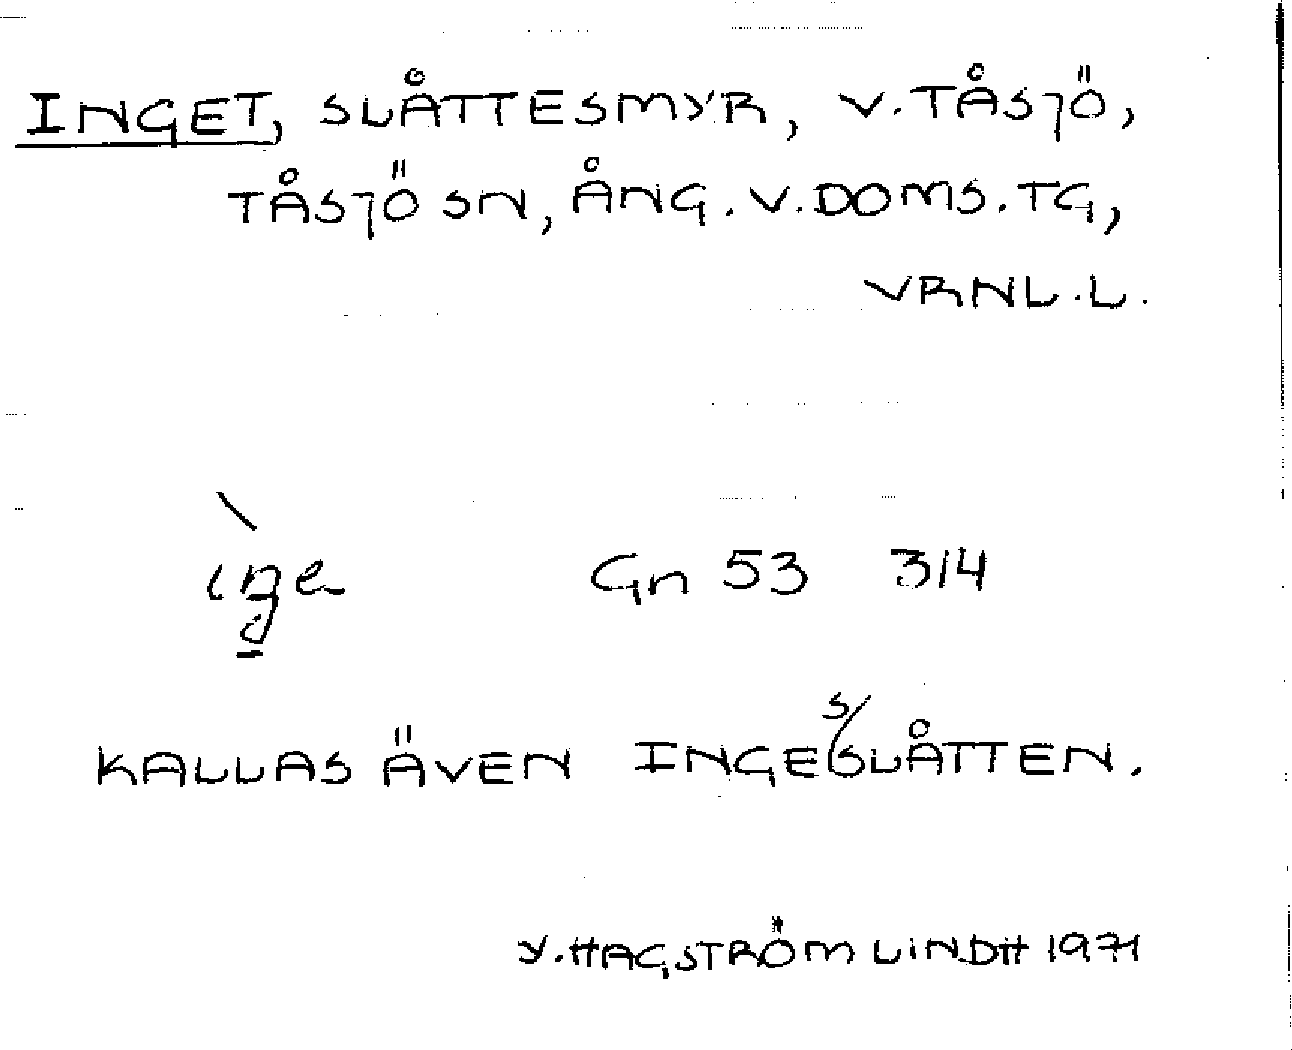 INGET, SLÅTTESMYR, V. TÅSJÖ,
TÅSJÖ SN, ÅNG. V. DOMS. TG,
VRNL. L.
Gn 53 314
KALLAS ÄVEN INGES/SLÅTTEN.
Y. HAGSTRÖM LINDH 1971